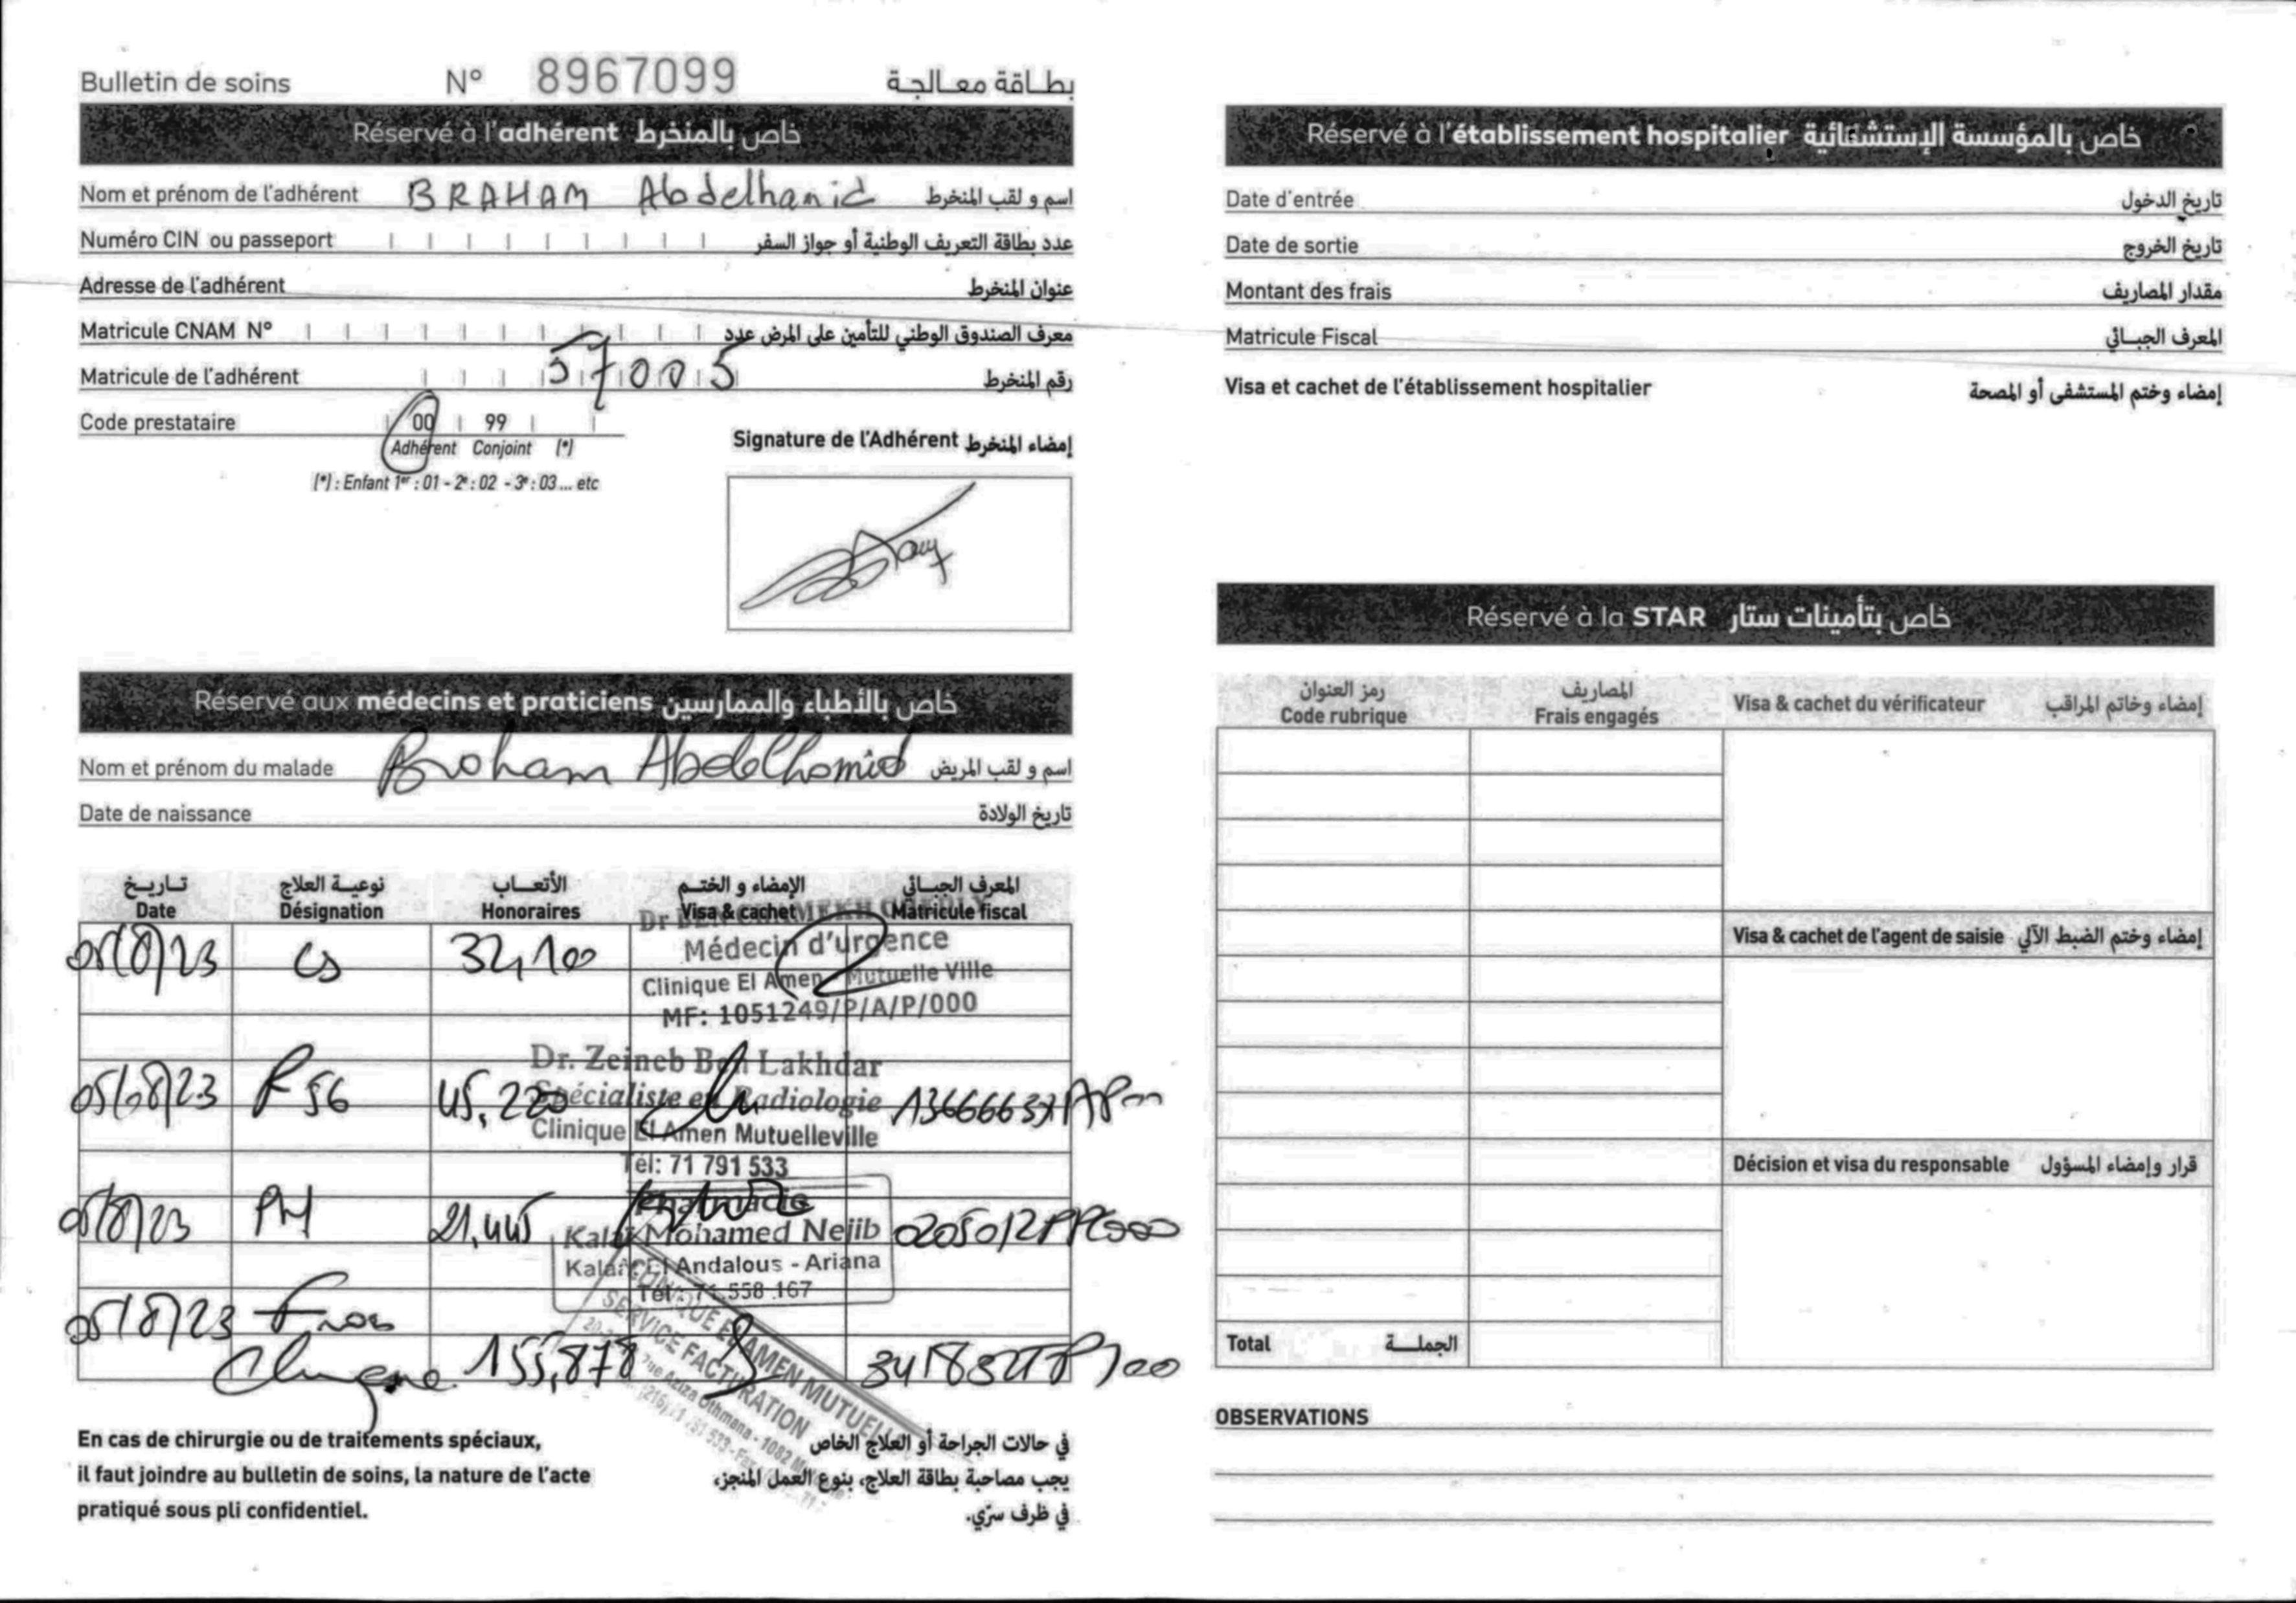 Bulletin de soins N° 8967099 بطاقة معالجة
Réservé à l'adhérent خاص بالمنخرط
Nom et prénom de l'adhérent BRAHAM Abdelhamid اسم و لقب المنخرط
Numéro CIN ou passeport عدد بطاقة التعريف الوطنية أو جواز السفر
Adresse de l'adhérent عنوان المنخرط
Matricule CNAM N° معرف الصندوق الوطني للتأمين على المرض عدد
Matricule de l'adhérent 57005 رقم المنخرط
Code prestataire 00 99
Adhérent Conjoint (*)
(*) : Enfant 1er : 01 - 2e : 02 - 3e : 03 ... etc
Signature de l'Adhérent إمضاء المنخرط
Réservé aux médecins et praticiens خاص بالأطباء والممارسين
Nom et prénom du malade Braham Abdelhamid اسم و لقب المريض
Date de naissance تاريخ الولادة
تاريخ نوعية العلاج الأتعاب الإمضاء و الختم المعرف الجبائي
Date Désignation Honoraires Visa & cachet Matricule fiscal
05/8/23 Cs 32,100
Médecin d'urgence
Clinique El Amen Mutuelle Ville
MF: 1051249/P/A/P/000
Dr. Zeineb Ben Lakhdar
05/08/23 R56 45,220 Spécialiste en Radiologie
Clinique El Amen Mutuelleville
Tél: 71 791 533
05/8/23 PH 21,445 Pharmacie
Kalaï Mohamed Nejib
Kalâat El Andalous - Ariana
Tél : 71 558 167
05/8/23 Frais
Clinique 155,878
CLINIQUE EL AMEN MUTUELLE
SERVICE FACTURATION
En cas de chirurgie ou de traitements spéciaux,
il faut joindre au bulletin de soins, la nature de l'acte
pratiqué sous pli confidentiel.
في حالات الجراحة أو العلاج الخاص
يجب مصاحبة بطاقة العلاج، بنوع العمل المنجز،
في ظرف سرّي.
Réservé à l'établissement hospitalier خاص بالمؤسسة الإستشفائية
Date d'entrée تاريخ الدخول
Date de sortie تاريخ الخروج
Montant des frais مقدار المصاريف
Matricule Fiscal المعرف الجبائي
Visa et cachet de l'établissement hospitalier إمضاء وختم المستشفى أو المصحة
Réservé à la STAR خاص بتأمينات ستار
رمز العنوان المصاريف
Code rubrique Frais engagés Visa & cachet du vérificateur إمضاء وخاتم المراقب
Visa & cachet de l'agent de saisie إمضاء وختم الضبط الآلي
Décision et visa du responsable قرار وإمضاء المسؤول
Total الجملة
OBSERVATIONS